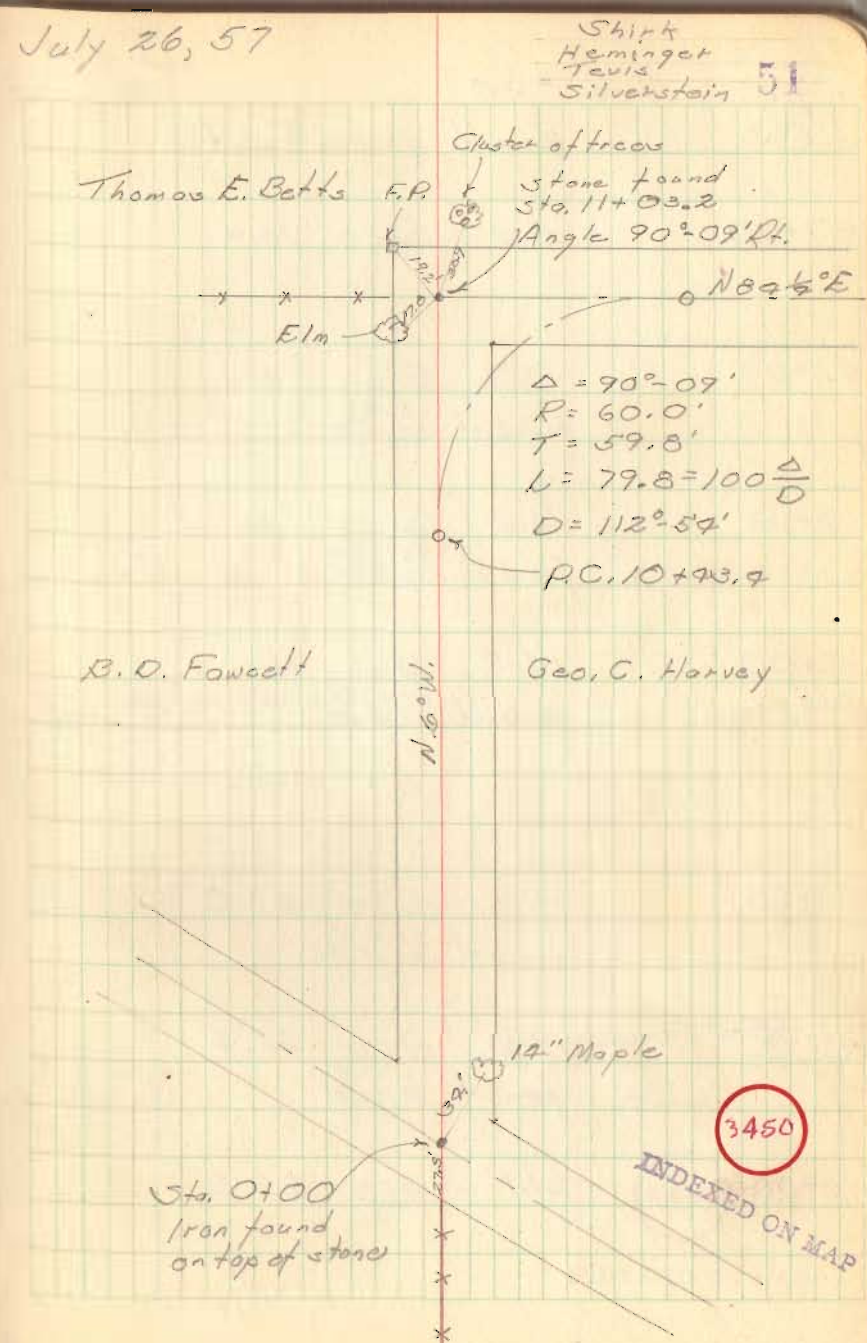 July 26, 57
Shirk
Heminger
Tevis
Silverstein
51
Cluster of trees
Thomas E. Betts
F.P.
stone found
Sta. 11+03.2
Angle 90°-09' Rt.
19.2'
17.0
N 84¼°E
Elm
Δ = 90°-09'
R = 60.0'
T = 59.8'
L = 79.8 = 100 Δ/D
D = 112°-54'
P.C. 10+43.4
B.D. Fawcett
Geo. C. Harvey
N 6° W.
14" Maple
34'
27.5'
3450
Sta. 0+00
Iron found
on top of stone
INDEXED ON MAP